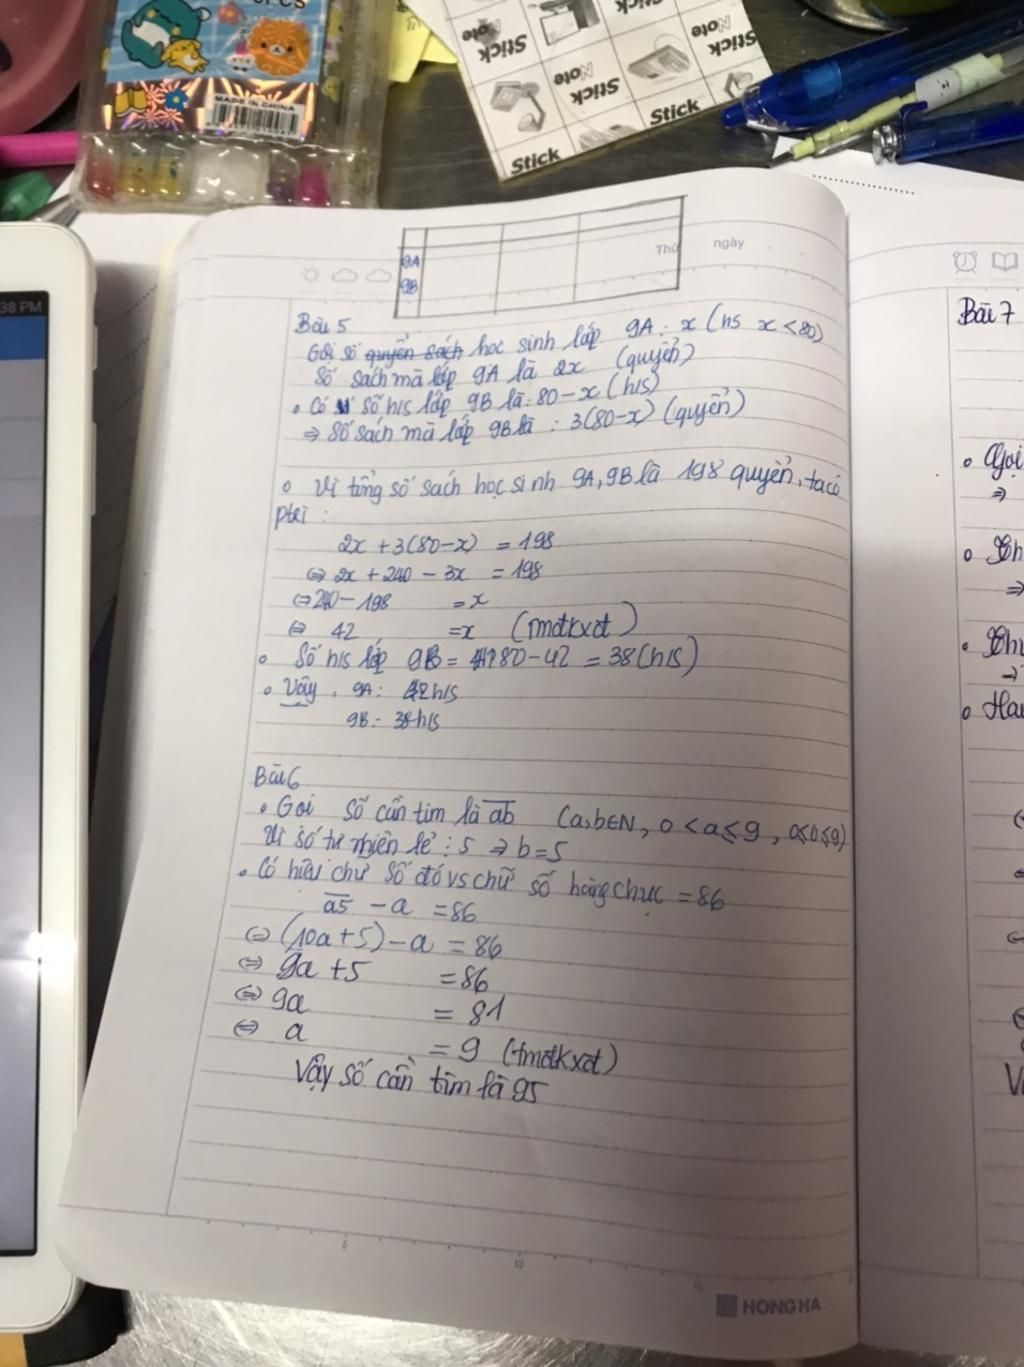 PCS
MADE IN CHINA
Stick
Note
Stick
Note
Stick
Note
Stick
Stick
Stick
38 PM
Thứ ngày
9A
9B
Bài 5
Gọi số quyển sách học sinh lớp 9A: x (hs x < 80)
Số sách mà lớp 9A là 2x (quyển)
• Có số h/s lớp 9B là: 80 - x (h/s)
⇒ Số sách mà lớp 9B là : 3(80-x) (quyển)
• Vì tổng số sách học sinh 9A, 9B là 198 quyển, ta có
ptrì :
2x + 3(80-x) = 198
⇔ 2x + 240 - 3x = 198
⇔ 240 - 198 = x
⇔ 42 = x (tmđkxđ)
• Số h/s lớp 9B = 80 - 42 = 38 (h/s)
• Vậy, 9A: 42 h/s
9B: 38 h/s
Bài 6
• Gọi số cần tìm là ab (a,b∈N, 0 < a ≤ 9, 0 ≤ b ≤ 9)
Vì số tự nhiên lẻ ⋮ 5 ⇒ b = 5
• Có hiệu chữ số đó vs chữ số hàng chục = 86
a5 - a = 86
⇔ (10a + 5) - a = 86
⇔ 9a + 5 = 86
⇔ 9a = 81
⇔ a = 9 (tmđkxđ)
Vậy số cần tìm là 95
5
10
HONG HA
Bài 7
• Gọi
⇒
•
⇒
•
→
•